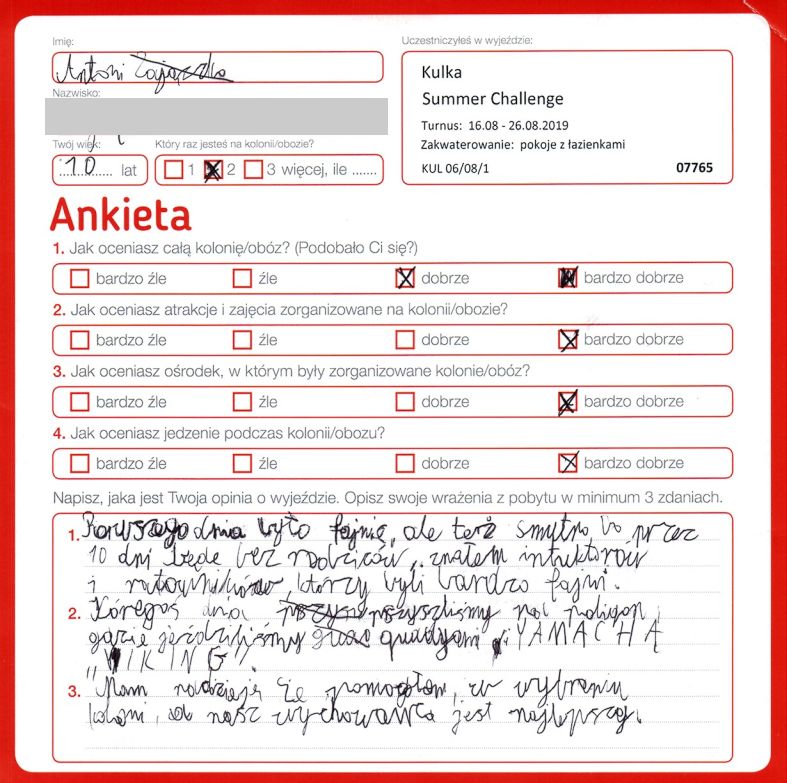 Imię:
Antoni Zajączka
Nazwisko:
Twój wiek:
10 lat
Który raz jesteś na kolonii/obozie?
1 2 3 więcej, ile .......
Uczestniczyłeś w wyjeździe:
Kulka
Summer Challenge
Turnus: 16.08 - 26.08.2019
Zakwaterowanie: pokoje z łazienkami
KUL 06/08/1 07765
Ankieta
1. Jak oceniasz całą kolonię/obóz? (Podobało Ci się?)
bardzo źle źle dobrze bardzo dobrze
2. Jak oceniasz atrakcje i zajęcia zorganizowane na kolonii/obozie?
bardzo źle źle dobrze bardzo dobrze
3. Jak oceniasz ośrodek, w którym były zorganizowane kolonie/obóz?
bardzo źle źle dobrze bardzo dobrze
4. Jak oceniasz jedzenie podczas kolonii/obozu?
bardzo źle źle dobrze bardzo dobrze
Napisz, jaka jest Twoja opinia o wyjeździe. Opisz swoje wrażenia z pobytu w minimum 3 zdaniach.
1. dnia było fajnie, ale też smytno bo przez
10 dni będe bez rodziców, znałem intruktorów
i ratowników, którzy byli bardzo fajni.
2. Kóregoś dnia pszyszliśmy na poligon,
gdzie jeździliśmy quadyami YAMACHĄ
"WIKING".
3. Mam nadzieje że pomogłem, w wybraniu
koloni, a nasz wychowawca jest najlepszy.